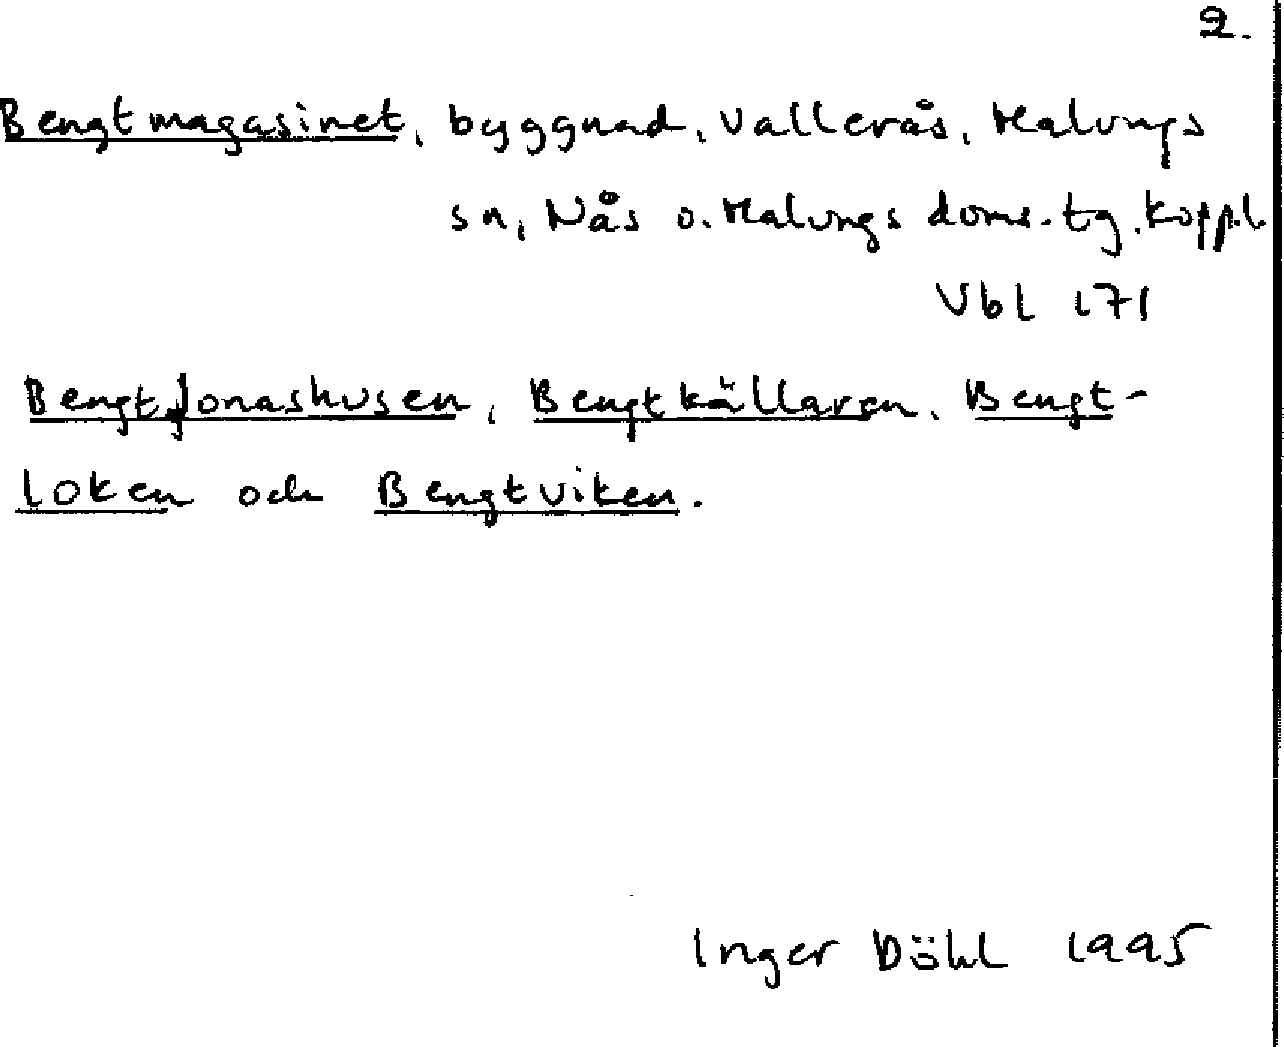 2.
Bengtmagasinet, byggnad, Vallerås, Malungs
sn, Nås o. Malungs doms. tg. Koppl.
Vbl 171
BengtJonashusen, Bengtkällaren, Bengt-
loken och Bengtviken.
Inger Döhl 1995